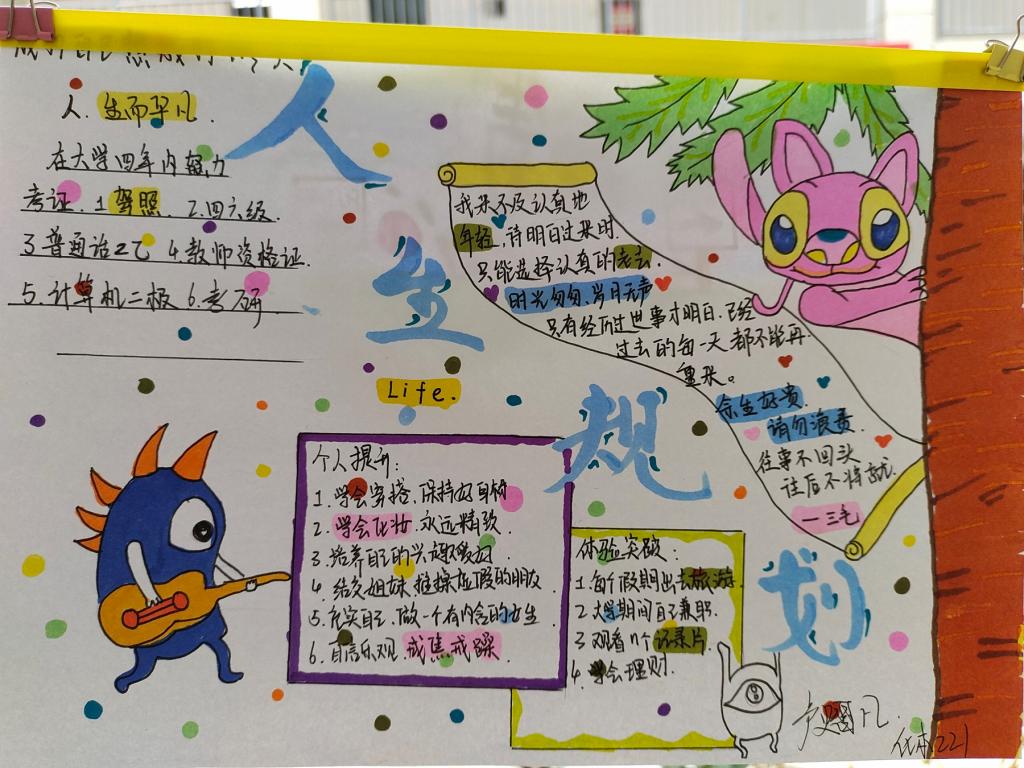 人.生而平凡.
在大学四年内努力
考证.1驾照.2.四六级.
3普通话2乙 4.教师资格证.
5.计算机二级 6.考研
人
生
规
划
Life.
我来不及认真地
年轻,待明白过来时.
只能选择认真的老去.
时光匆匆.岁月无声
只有经历过世事才明白.已经
过去的每一天都不能再
重来。
余生好贵
请勿浪费
往事不回头
往后不将就.
—三毛
个人提升:
1.学会穿搭.保持好身材
2.学会化妆.永远精致.
3.培养自己的兴趣
4.结交姐妹 的朋友
5.充实自己.做一个有内含的女生
6.自信乐观.戒焦戒躁.
体验突破:
1.每个假期出去旅游.
2.大学期间自己兼职.
3.观看n个记录片.
4.学会理财.
221